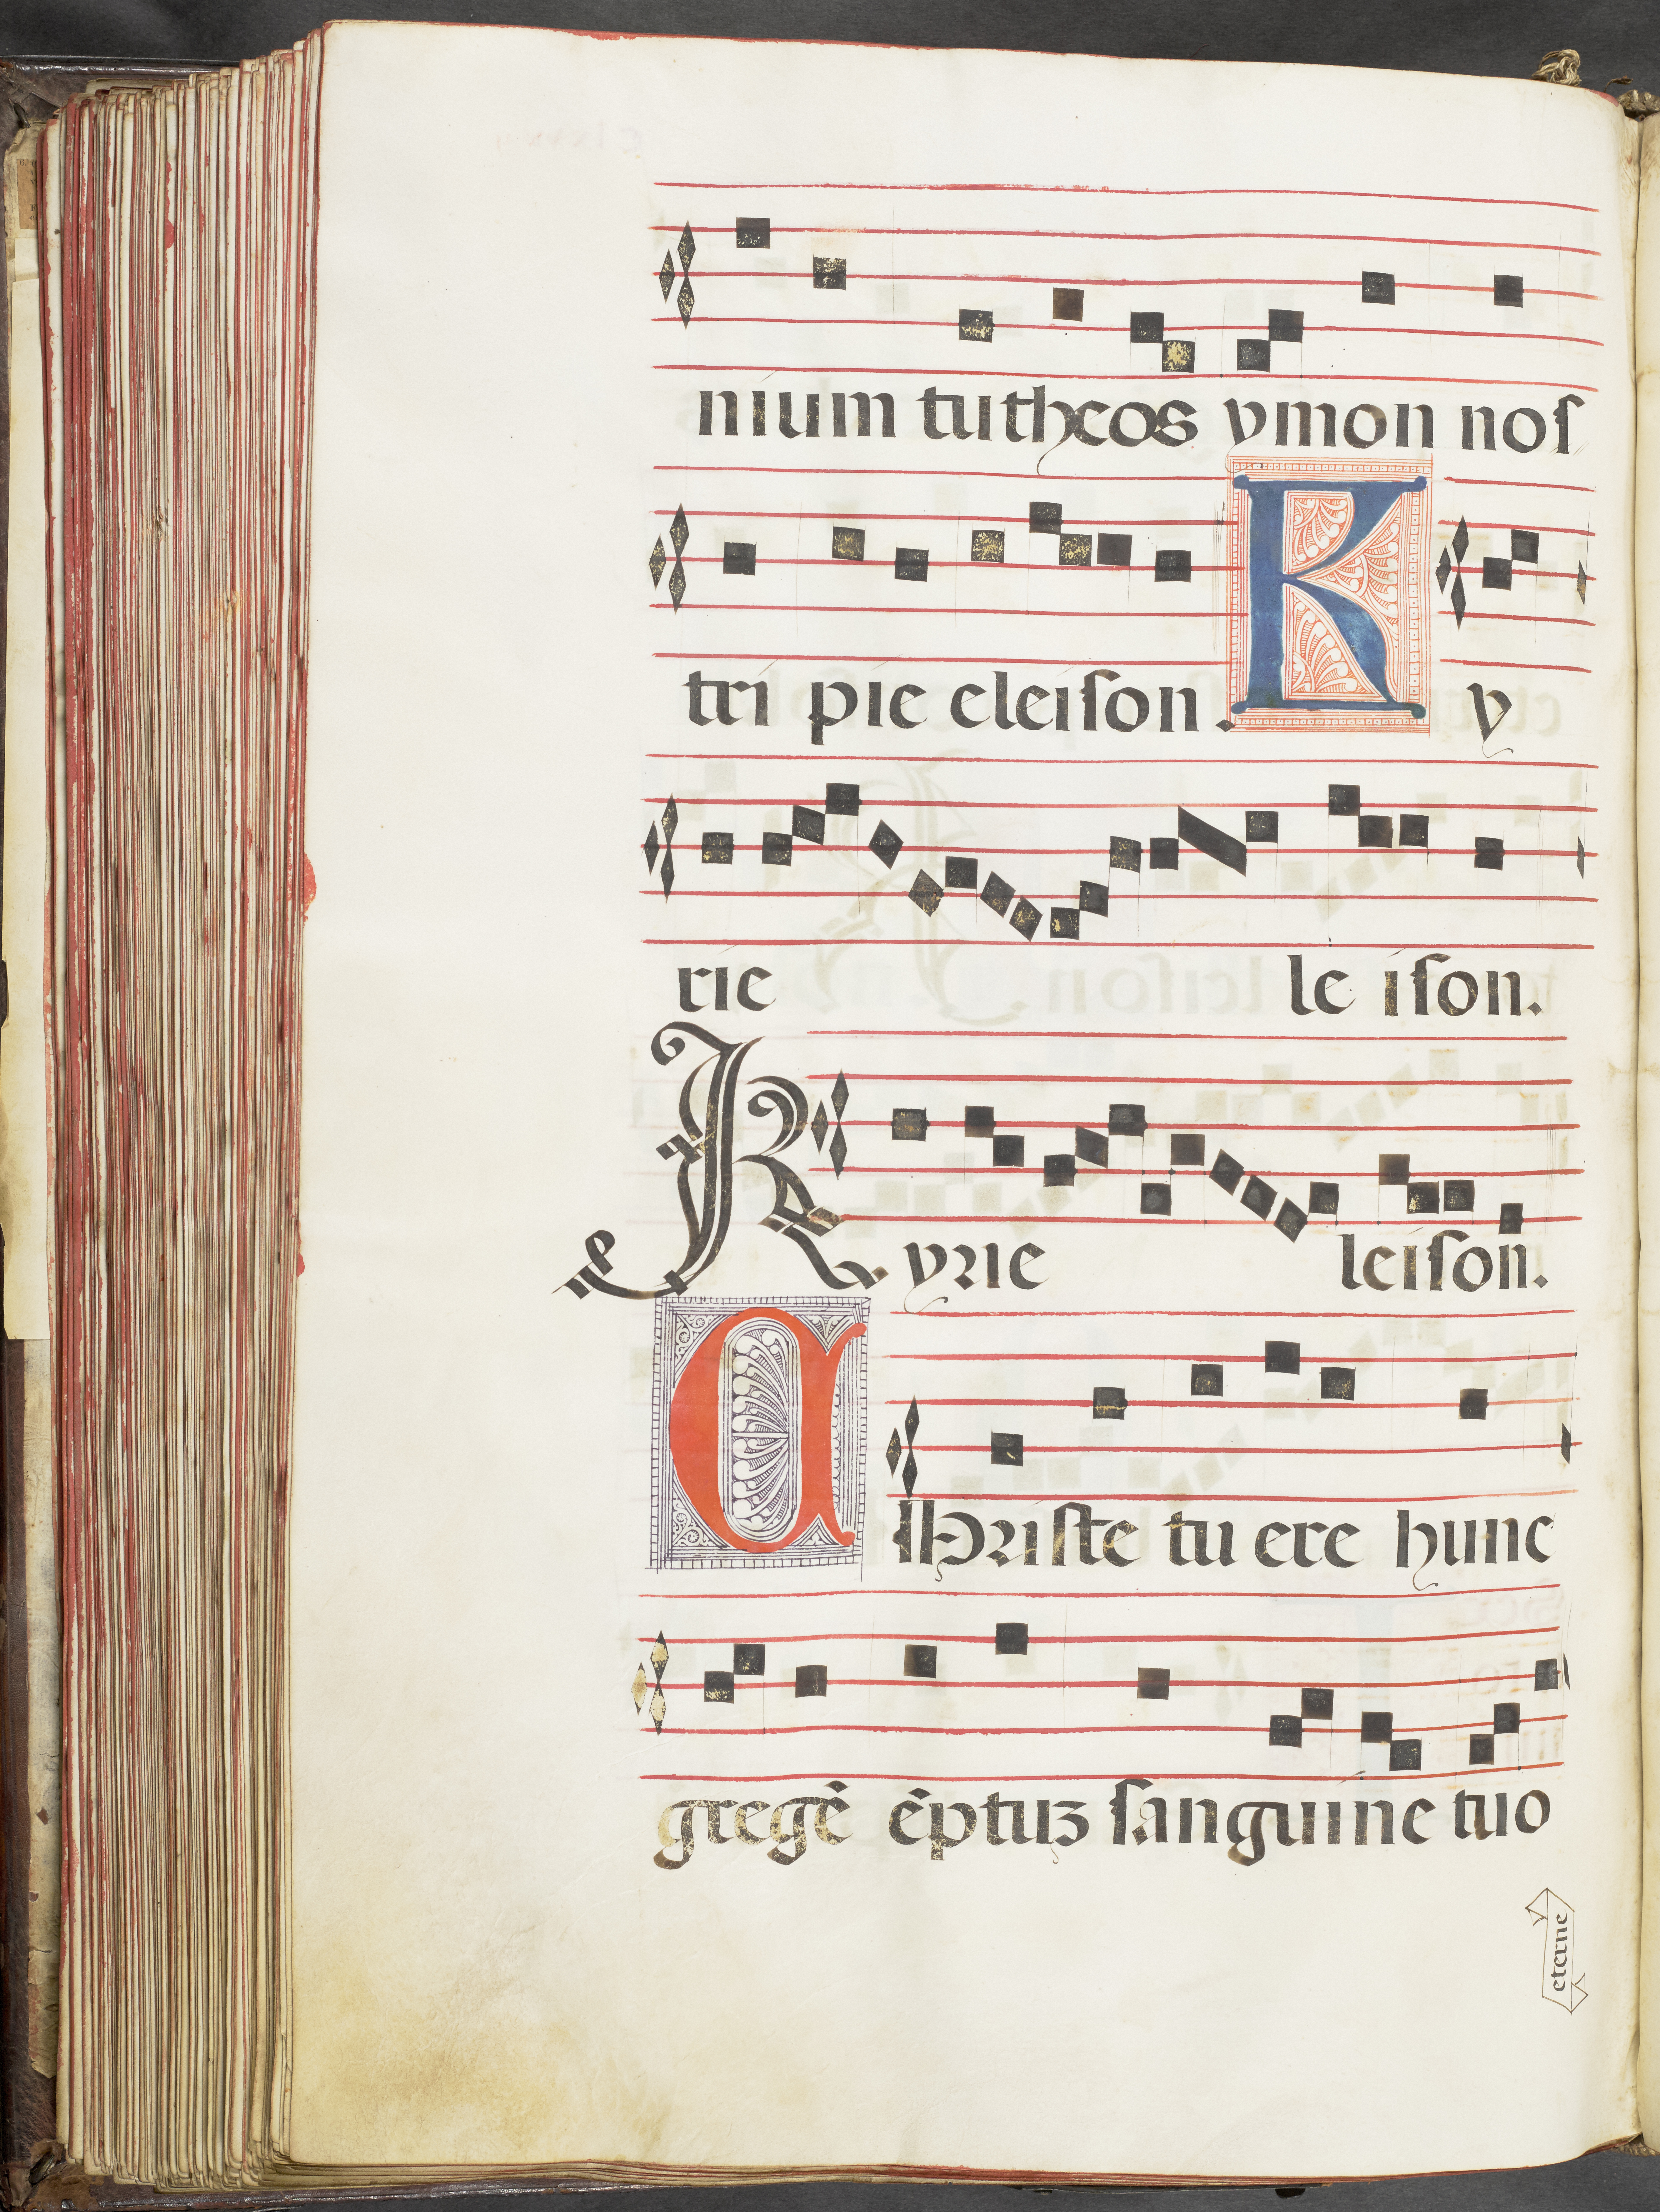 nium tu theos ymon nos
tri pie eleiſon. K y
rie le iſon.
Kyrie leiſon.
Chriſte tu ere hunc
gregē ēptuꝫ ſanguine tuo
eterne